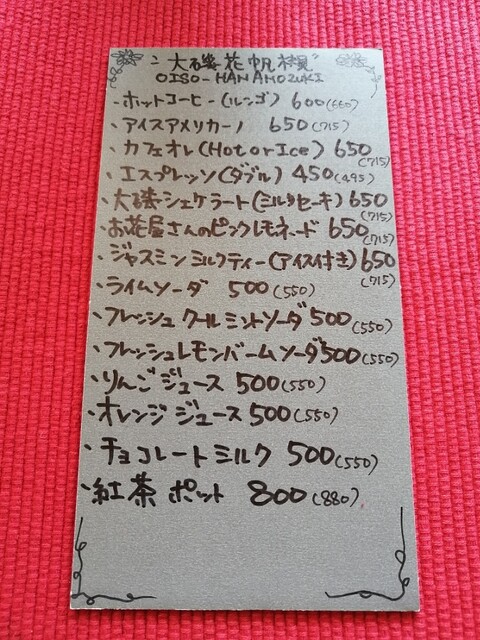 "大磯花帆槻"
OISO-HANAHOZUKI
・ホットコーヒー(ルンゴ) 600(660)
・アイスアメリカーノ 650(715)
・カフェオレ(Hot or Ice) 650(715)
・エスプレッソ(ダブル) 450(495)
・大磯シェケラート(ミルクセーキ) 650(715)
・お花屋さんのピンクレモネード 650(715)
・ジャスミンミルクティー(アイス付き) 650(715)
・ライムソーダ 500(550)
・フレッシュクールミントソーダ 500(550)
・フレッシュレモンバームソーダ 500(550)
・りんごジュース 500(550)
・オレンジジュース 500(550)
・チョコレートミルク 500(550)
・紅茶ポット 800(880)